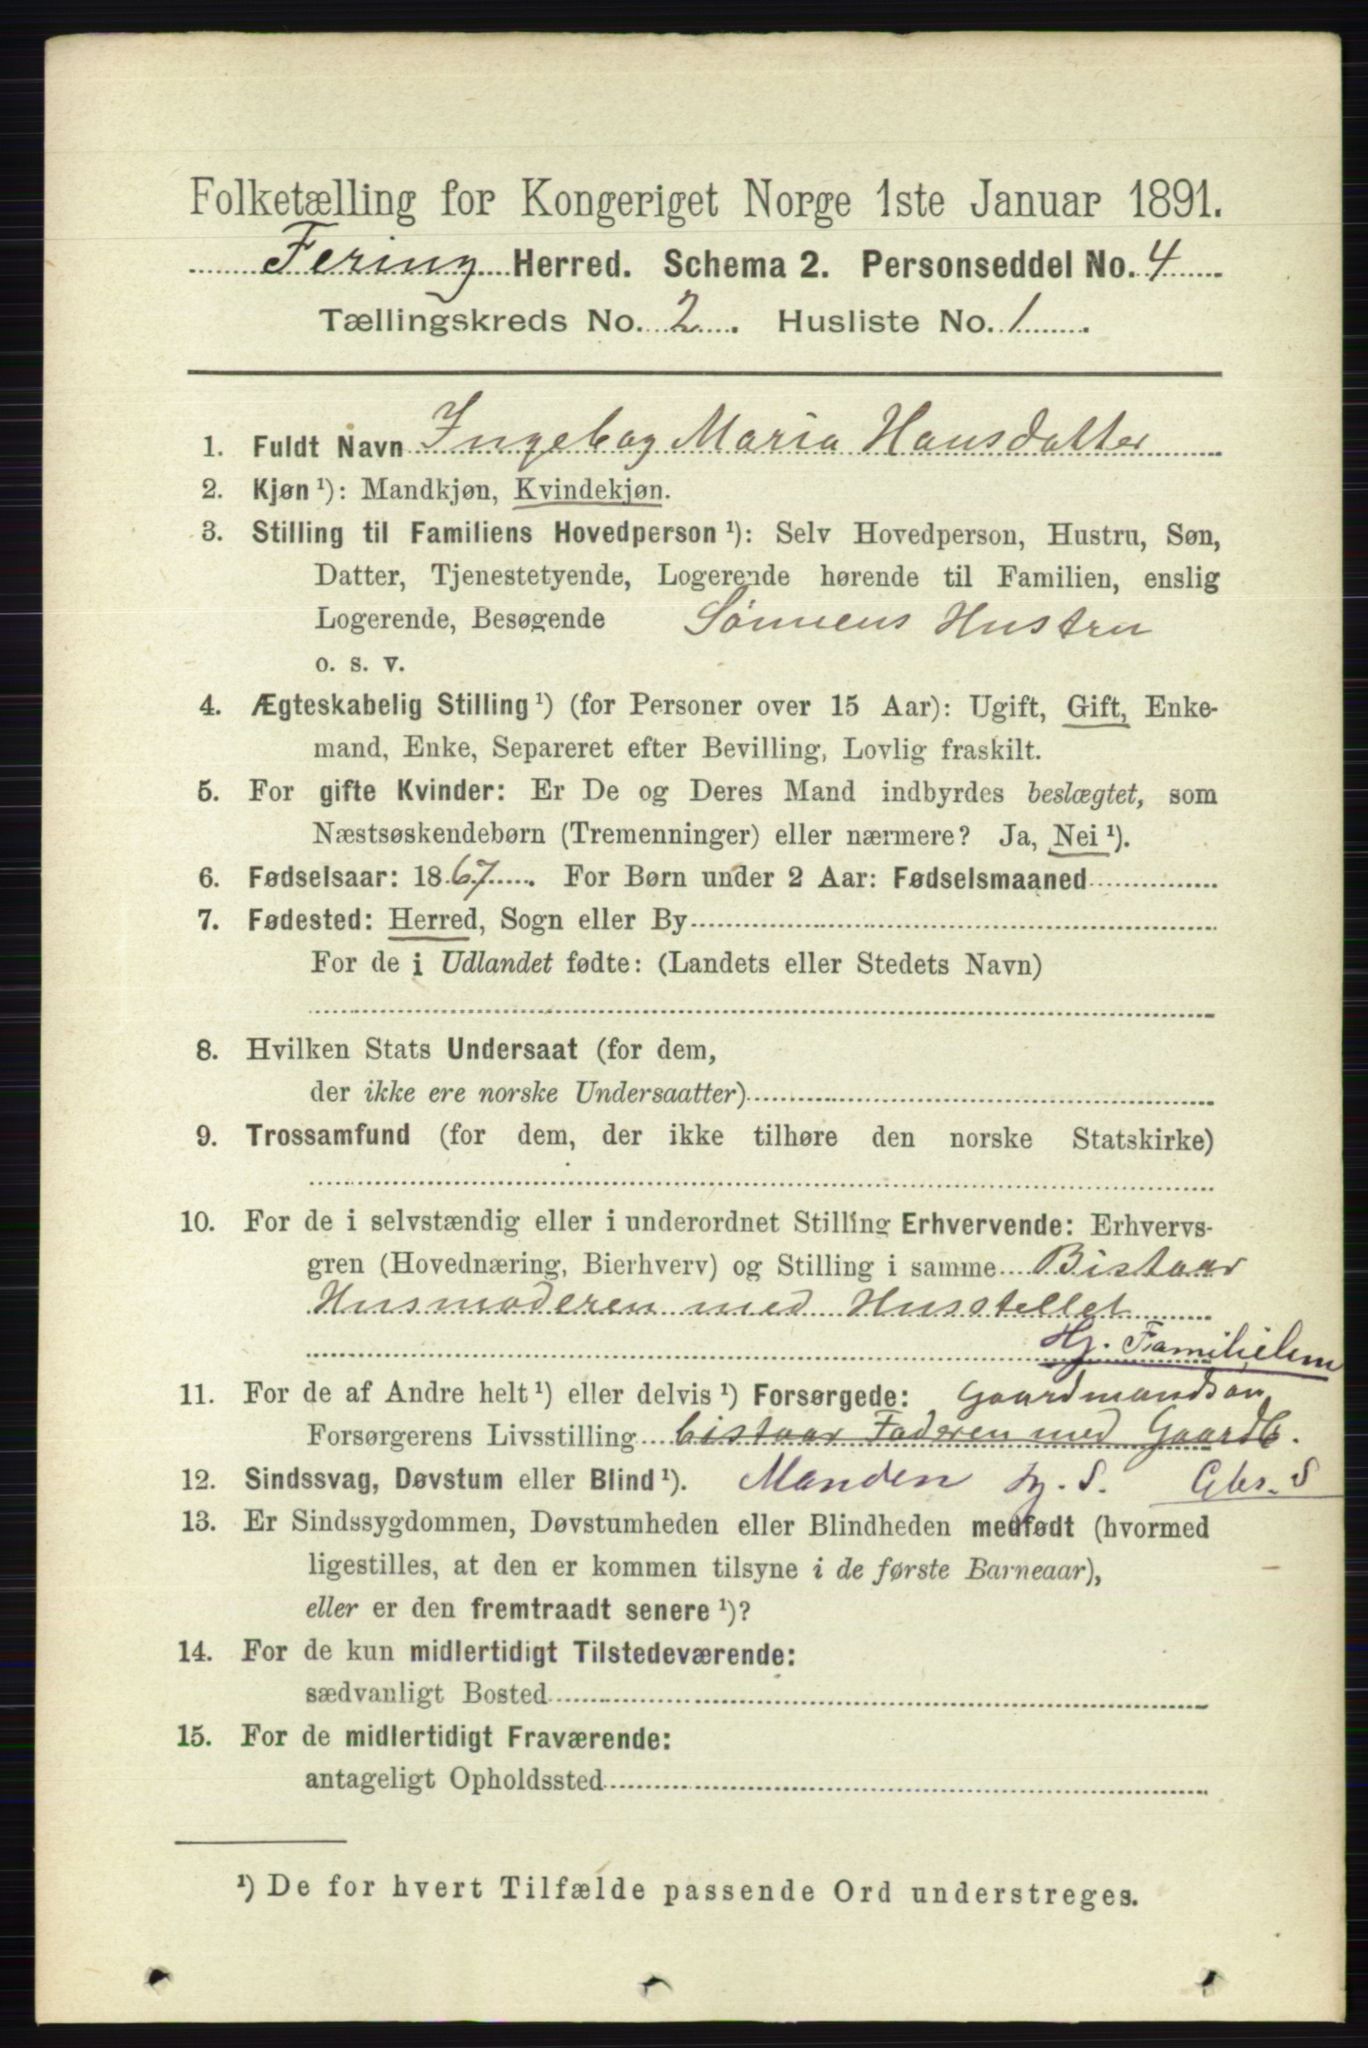 Folketælling for Kongeriget Norge 1ste Januar 1891.
Fering Herred. Schema 2. Personseddel No. 4
Tællingskreds No. 2. Husliste No. 1
1. Fuldt Navn Ingebog Maria Hansdatter
2. Kjøn ¹): Mandkjøn, Kvindekjøn.
3. Stilling til Familiens Hovedperson ¹): Selv Hovedperson, Hustru, Søn,
Datter, Tjenestetyende, Logerende hørende til Familien, enslig
Logerende, Besøgende Sønnens Hustru
o. s. v.
4. Ægteskabelig Stilling ¹) (for Personer over 15 Aar): Ugift, Gift, Enke-
mand, Enke, Separeret efter Bevilling, Lovlig fraskilt.
5. For gifte Kvinder: Er De og Deres Mand indbyrdes beslægtet, som
Næstsøskendebørn (Tremenninger) eller nærmere? Ja, Nei ¹).
6. Fødselsaar: 1867. For Børn under 2 Aar: Fødselsmaaned
7. Fødested: Herred, Sogn eller By
For de i Udlandet fødte: (Landets eller Stedets Navn)
8. Hvilken Stats Undersaat (for dem,
der ikke ere norske Undersaatter)
9. Trossamfund (for dem, der ikke tilhøre den norske Statskirke)
10. For de i selvstændig eller i underordnet Stilling Erhvervende: Erhvervs-
gren (Hovednæring, Bierhverv) og Stilling i samme Bistaar
Husmoderen med Husstellet
Hj. Familielem
11. For de af Andre helt ¹) eller delvis ¹) Forsørgede: Gaardmandsøn
Forsørgerens Livsstilling bistaar Faderen med Gaardb.
12. Sindssvag, Døvstum eller Blind ¹). Manden hj. S. Gbr. S
13. Er Sindssygdommen, Døvstumheden eller Blindheden medfødt (hvormed
ligestilles, at den er kommen tilsyne i de første Barneaar),
eller er den fremtraadt senere ¹)?
14. For de kun midlertidigt Tilstedeværende:
sædvanligt Bosted
15. For de midlertidigt Fraværende:
antageligt Opholdssted
¹) De for hvert Tilfælde passende Ord understreges.